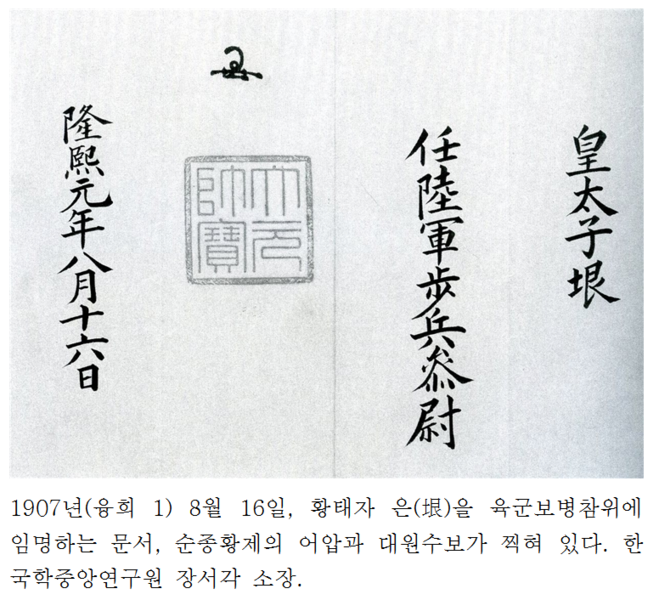 皇太子垠
任陸軍步兵叅尉
大元
帥寶
隆熙元年八月十六日
1907년(융희 1) 8월 16일, 황태자 은(垠)을 육군보병참위에
임명하는 문서, 순종황제의 어압과 대원수보가 찍혀 있다. 한
국학중앙연구원 장서각 소장.